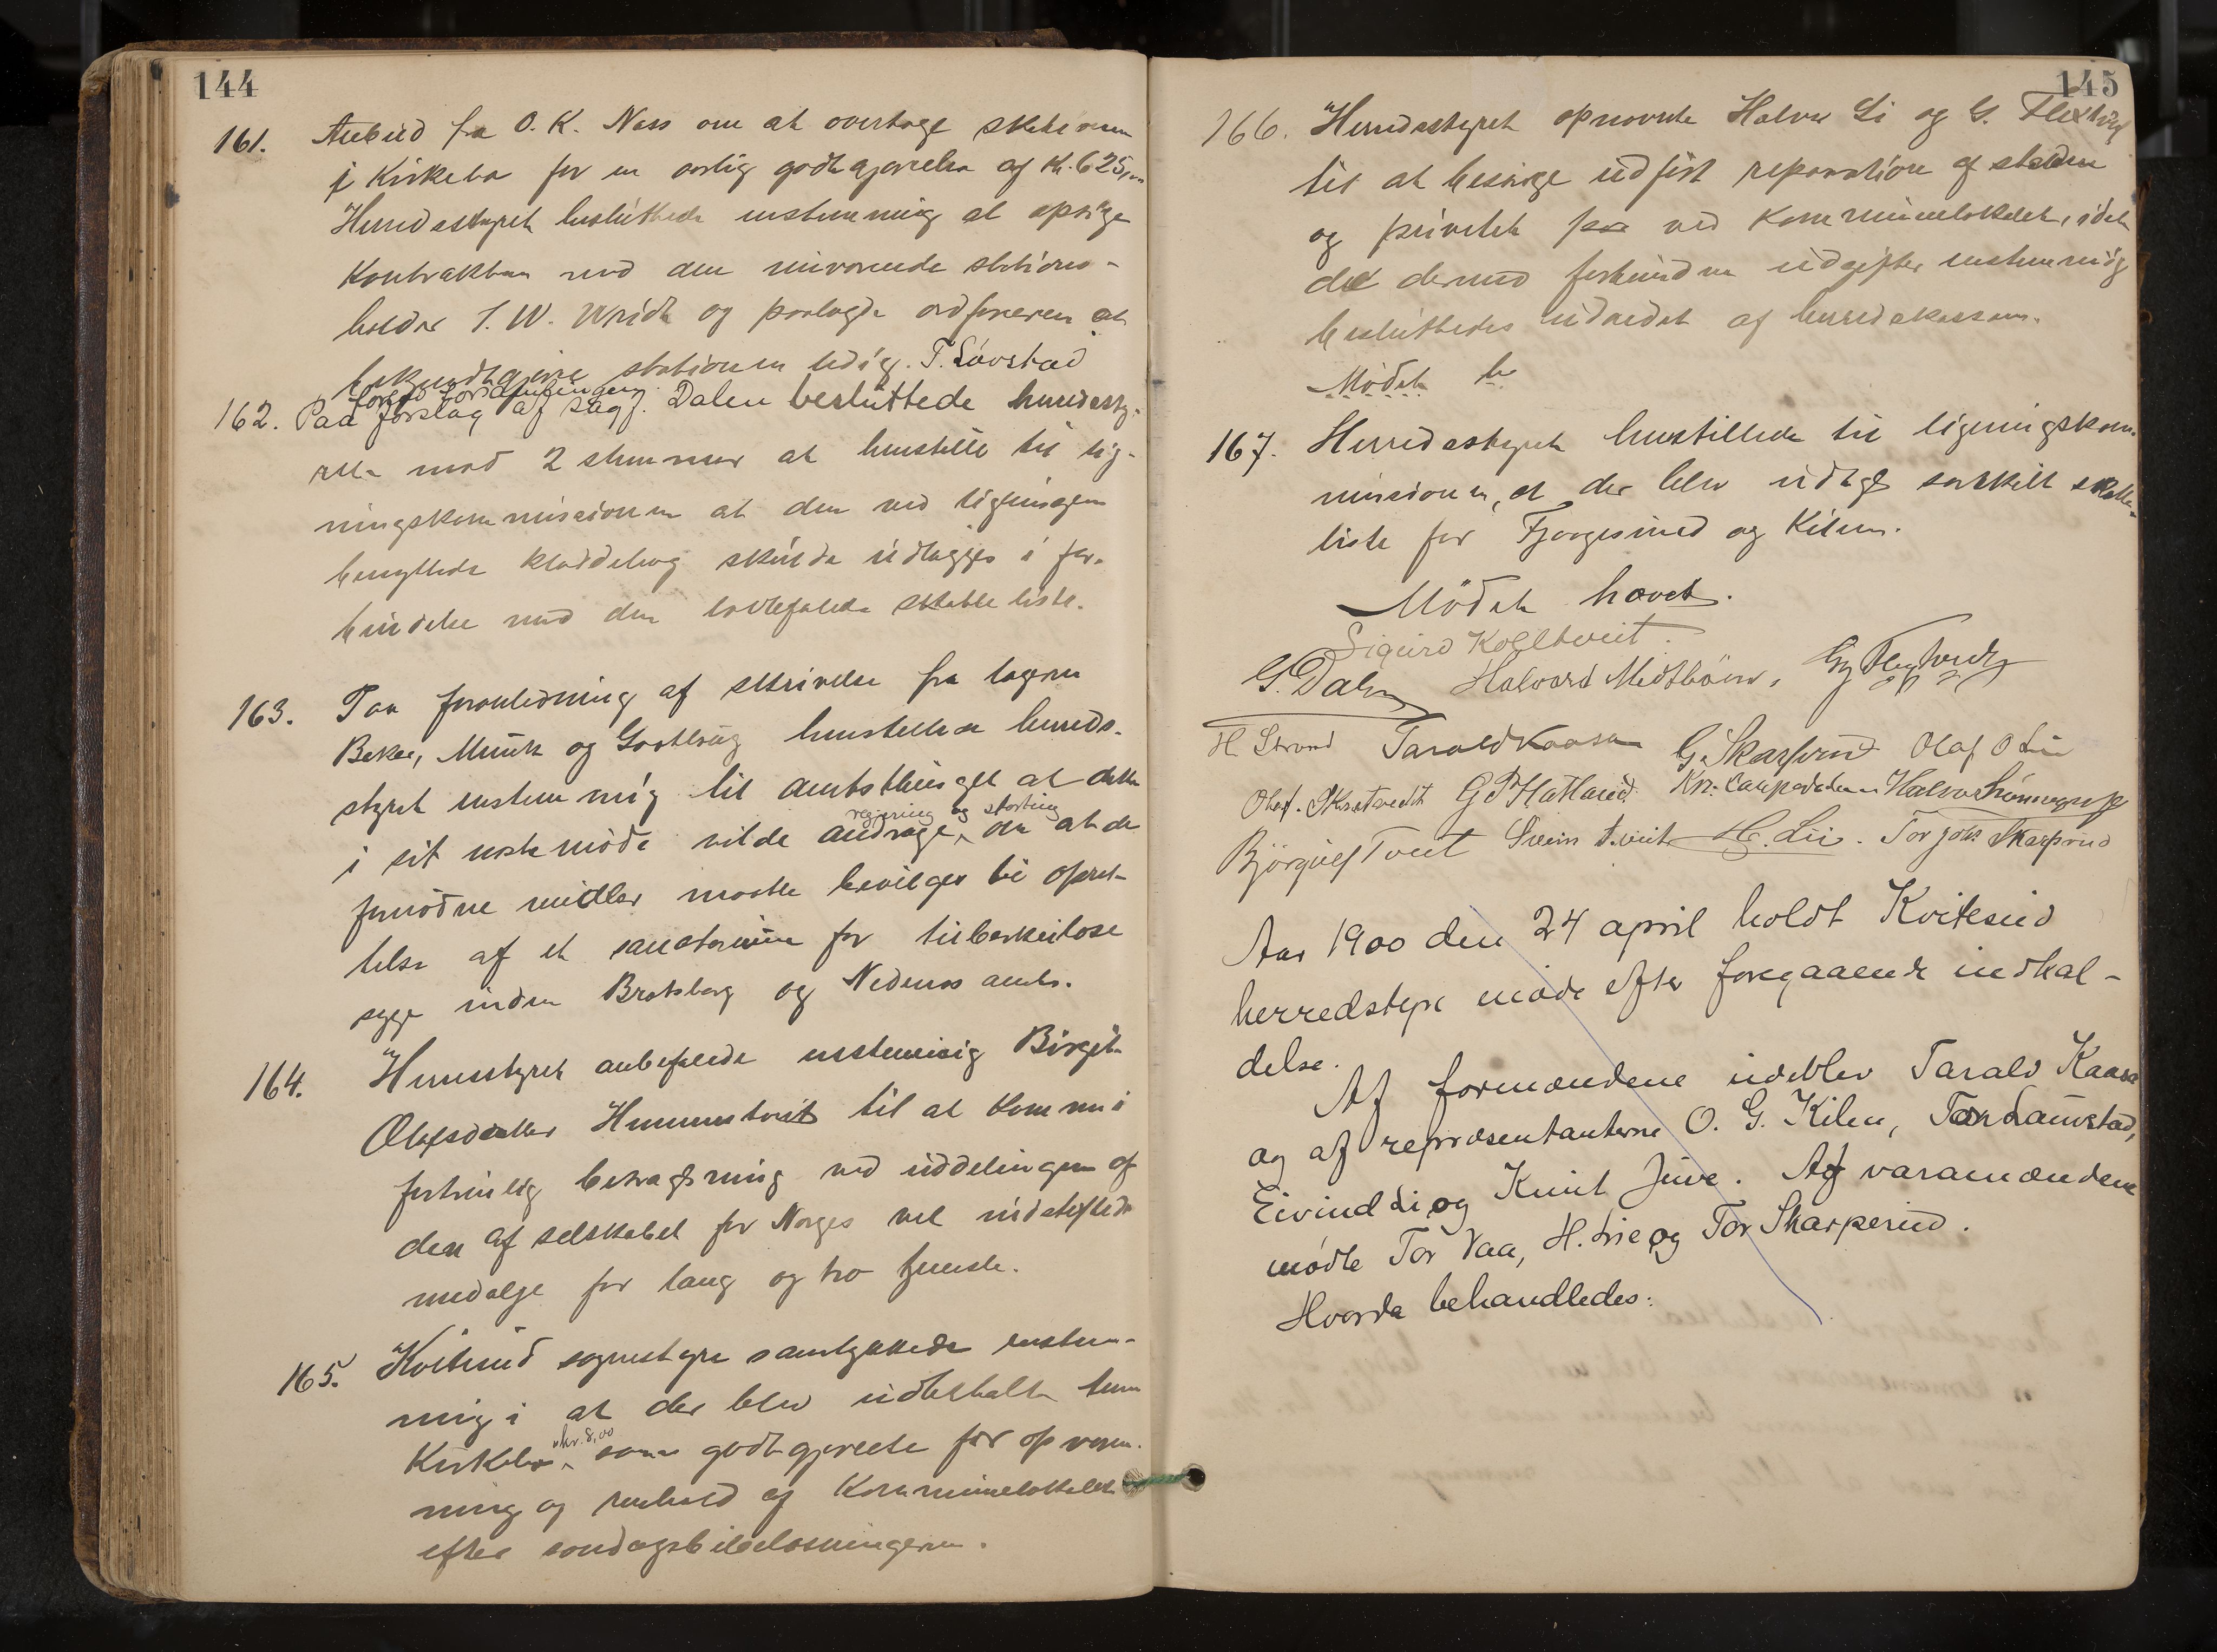 144
161. Anbud fra O. K. Næss om at overtage skydsstationen
i Kirkebø for en aarlig godtgjørelse af kr. 625,00
Herredsstyret besluttede enstemmig at opsige
Kontrakten med den nuværende stations-
holder J. W. og paalagde ordføreren at
bekjendtgjøre stationen ledig. T. Lövstad
foreslo
162. Paa forslag af sagf. Dalen besluttede herredssty-
ret mod 2 stemmer at henstille til lig-
ningskommissionen at den ved ligningen
benyttede kladdebog skulde udlægges i for-
bindelse med den lovbefalede skatteliste.
163. Paa foranledning af skrivelse fra lægerne
Beker, Munk og henstillede herreds-
styret enstemmig til amtsthinget at dette
i sit møde vilde andrage regjering og storting om at de
fornödne midler maatte bevilges til opret-
telse af et sanatorium for tuberkuløse
syge inden Bratsberg og Nedenæs amter.
164. Herredsstyret anbefalede enstemmig Birgit
Olafsdatter Hemmestveit til at komme i
fortrinlig betragtning ved uddelingen af
den af selskabet for Norges vel indstiftede
medalge for lang og tro tjeneste.
165. Kviteseid sognestyre samtykkede enstem-
mig i at der blev udbetalt
Kirkebø kr. 8,00 som godtgjørelse for opvarm-
ning og renhold af Kommunelokalet
efter söndagsbibellæsningerne.
145
166. Herredsstyret opnævnte Halvor Li og G.
til at besørge udført reparation af stalden
og privetet paa ved Kommunelokalet, idet
de dermed forbundne udgifter enstemmig
besluttedes udredet af herredskassen.
Mödet h
167. Herredsstyret henstillede til ligningskom-
missionen, at der blev udlagt særskilt skatte-
liste for Fjaagesund og Kilen.
Mödet hævet.
Sigurd Kolltveit.
G. Dalen Halvard Midtbøen,
H Strand Tarald Kaasa G. Skarprud Olaf O Lii
Olaf. G P Hatland.
Björgulf Tveit Svein Tveit H. Lii. Torjus Skarprud
Aar 1900 den 24 april holdt Kviteseid
herredstyre møde efter foregaaende indkal-
delse.
Af formændene udeblev Tarald Kaasa
og af repræsentanterne O. G. Kilen, Tor Laurstad,
Eivind Li og Knut Juve. Af varamændene
mødte Tor Vaa, H. Lie og Tor Skarperud.
Hvorda behandledes: